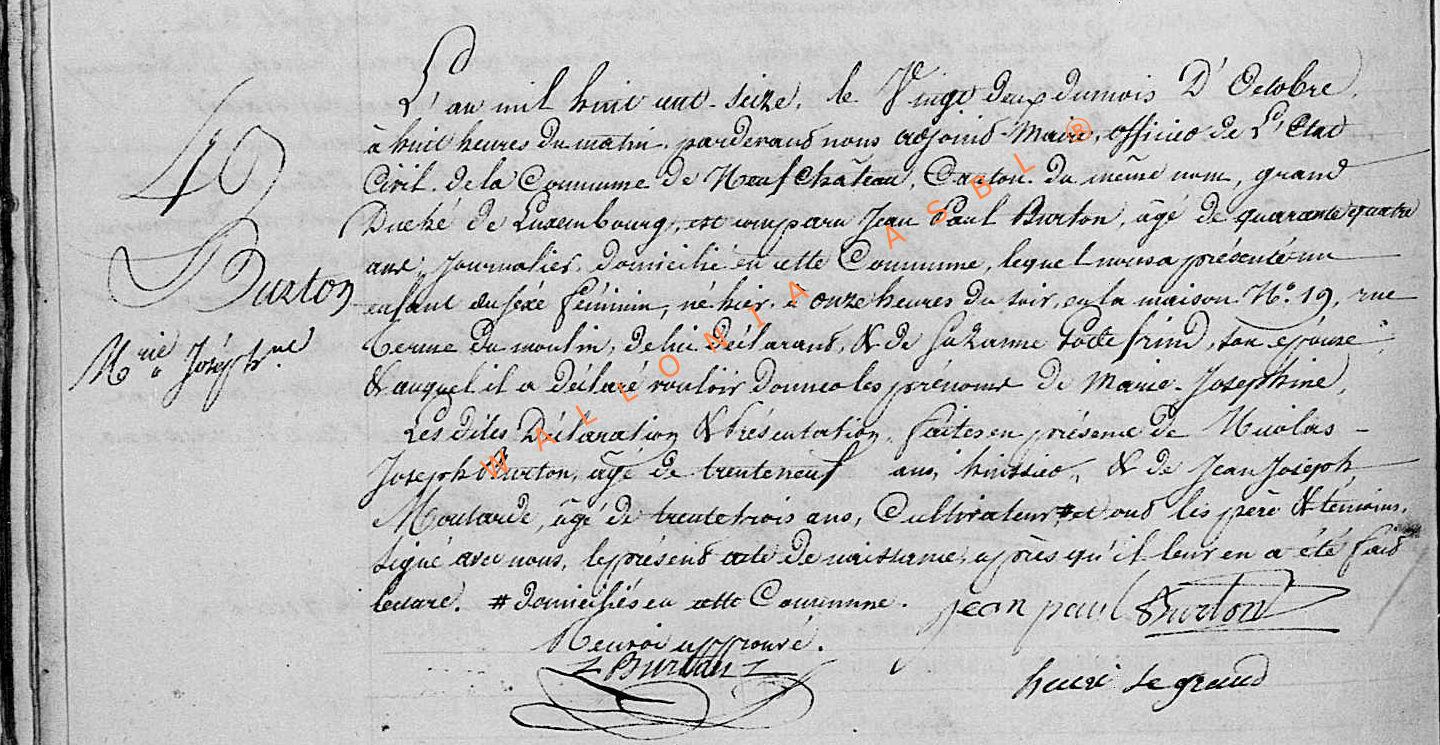 49
Burton
M.rie Joséph.ne
L'an mil huit cent-seize, le Vingt deux du mois D'Octobre,
à huit heures du matin, pardevant nous adjoint-Maire, officier de L'Etat
Civil de la Commune de Neufchâteau, Canton du même nom, grand
Duché de Luxembourg, est comparu Jean Paul Burton, âgé de quarante quatre
ans, Journalier, domicilié en cette Commune, lequel nous a présenté un
enfant du séxe féminin, né hier, à onze heures du soir, en la maison No. 19, rue
du moulin, de lui déclarant, & de Suzanne son épouse
& auquel il a déclaré vouloir donner les prénoms de Marie-Joséphine,
Les dites Déclaration & Présentation, faites en présence de Nicolas-
Joseph Burton, âgé de trente neuf ans, huissier, & de Jean Joseph
Moutarde, âgé de trente trois ans, Cultivateur, # et ont les père & témoins,
signé avec nous, le présent acte de naissance, après qu'il leur en a été fait
lecture. # domiciliés en cette Commune.
Renvoi approuvé.
jean paul Burton
Burton
henri Legrand
WALLONIA ASBL ®